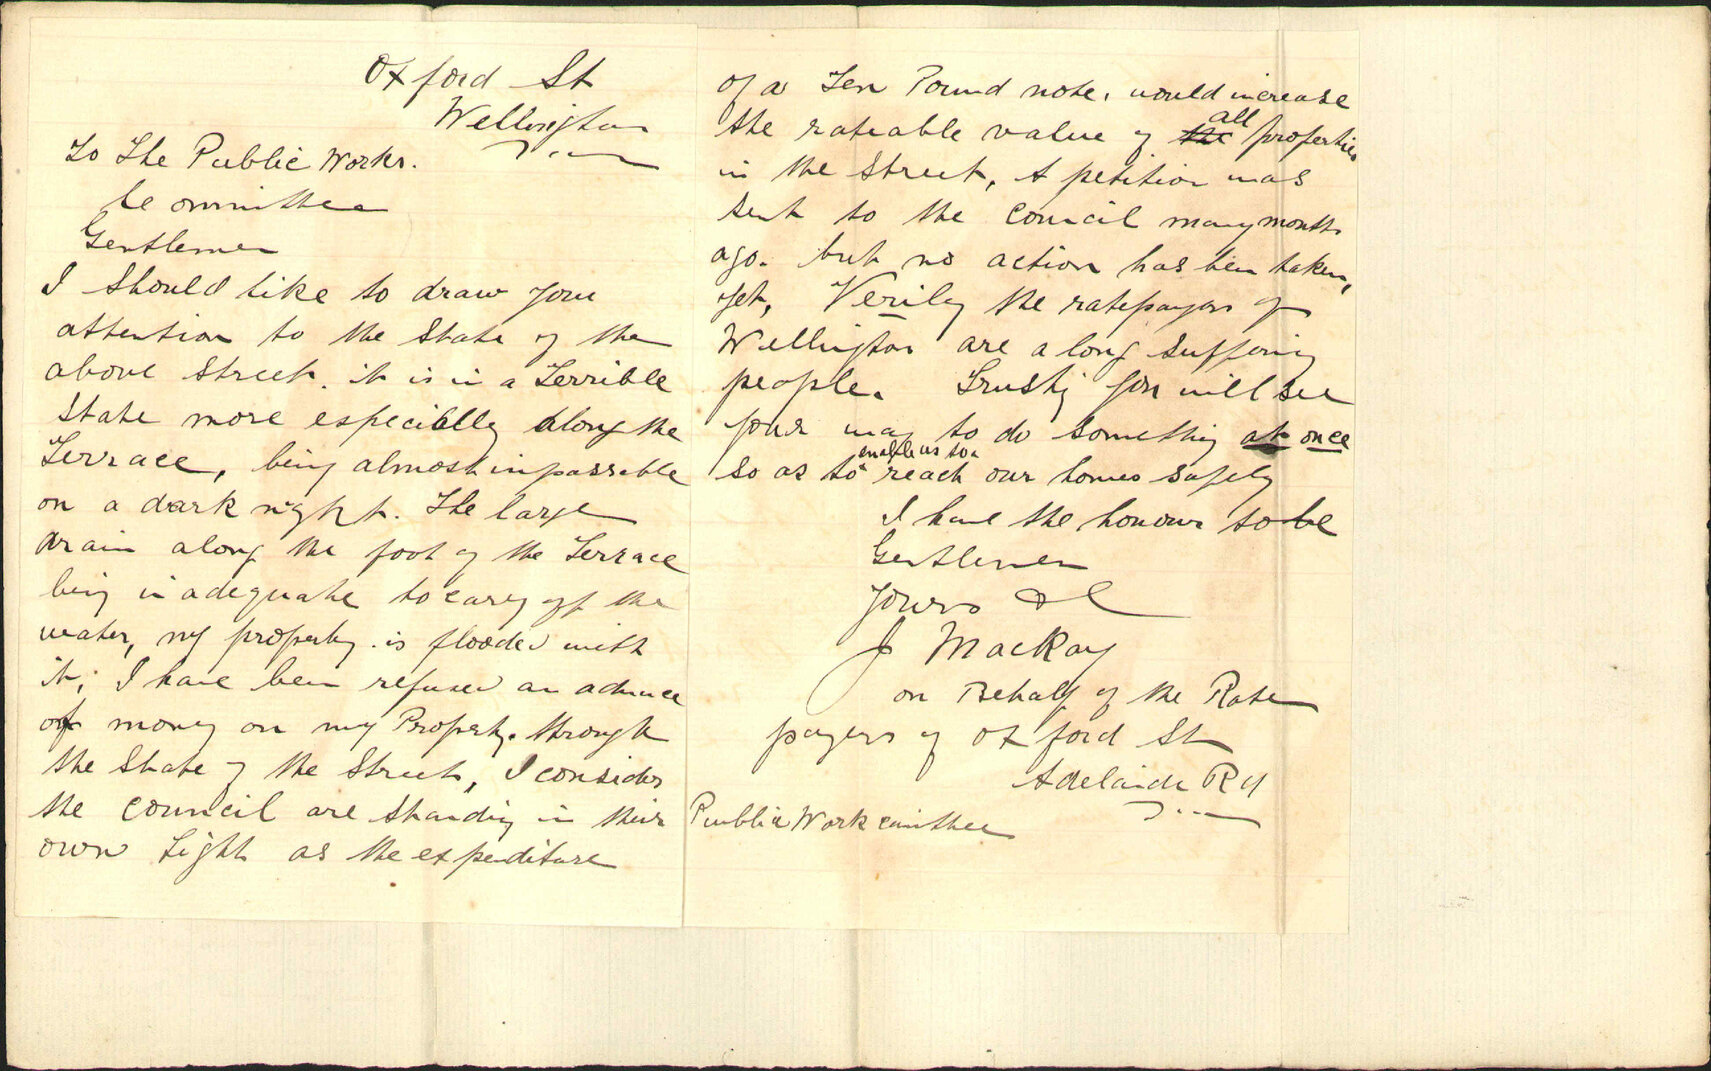 Oxford St
Wellington
To The Public Works.
Committee
Gentlemen
I Should like to draw your
attention to the State of the
above Street. it is in a Terrible
State more especially along the
Terrace, being almost inpassable
on a dark night. The large
drain along the foot of the Terrace
being inadequate to carry off the
water, my property. is flooded with
it; I have been refused an advance
of money on my Property. through
the State of the Street, I consider
the council are standing in their
own Light as the expenditure
of a Ten Pound note. would increase
the rateable value of the all properties
in the Street, A petition was
sent to the council many months
ago. but no action has been taken,
yet, Verily the ratepayers of
Wellington are a long suffering
people. Trusting you will see
your way to do something at once
so as to enable us to reach our homes safely
I have the honour to be
Gentlemen
Yours &c
J Mackay
on Behalf of the Rate
payers of Oxford St
Adelaide Rd
Public Work comittee